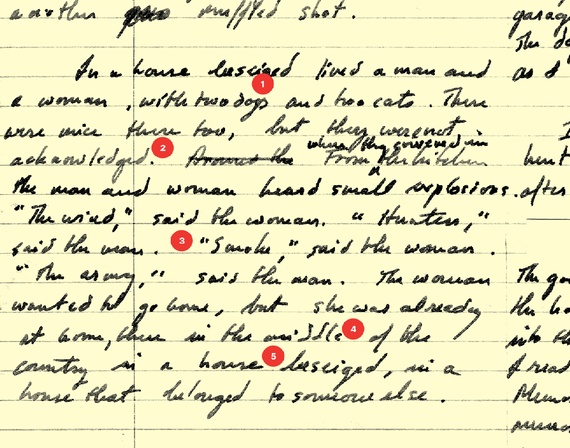 another muffled shot.
In a house beseiged lived a man and
1
a woman, with two dogs and two cats. There
were mice there too, but they were not
where they cowered in
acknowledged. 2 Around the From the kitchen
the man and woman heard small explosions.
"The wind," said the woman. "Hunters,"
said the man. 3 "Smoke," said the woman.
"The army," said the man. The woman
wanted to go home, but she was already
at home, there in the middle 4 of the
country in a house 5 beseiged, in a
house that belonged to someone else.
as I
after
The
into
I read